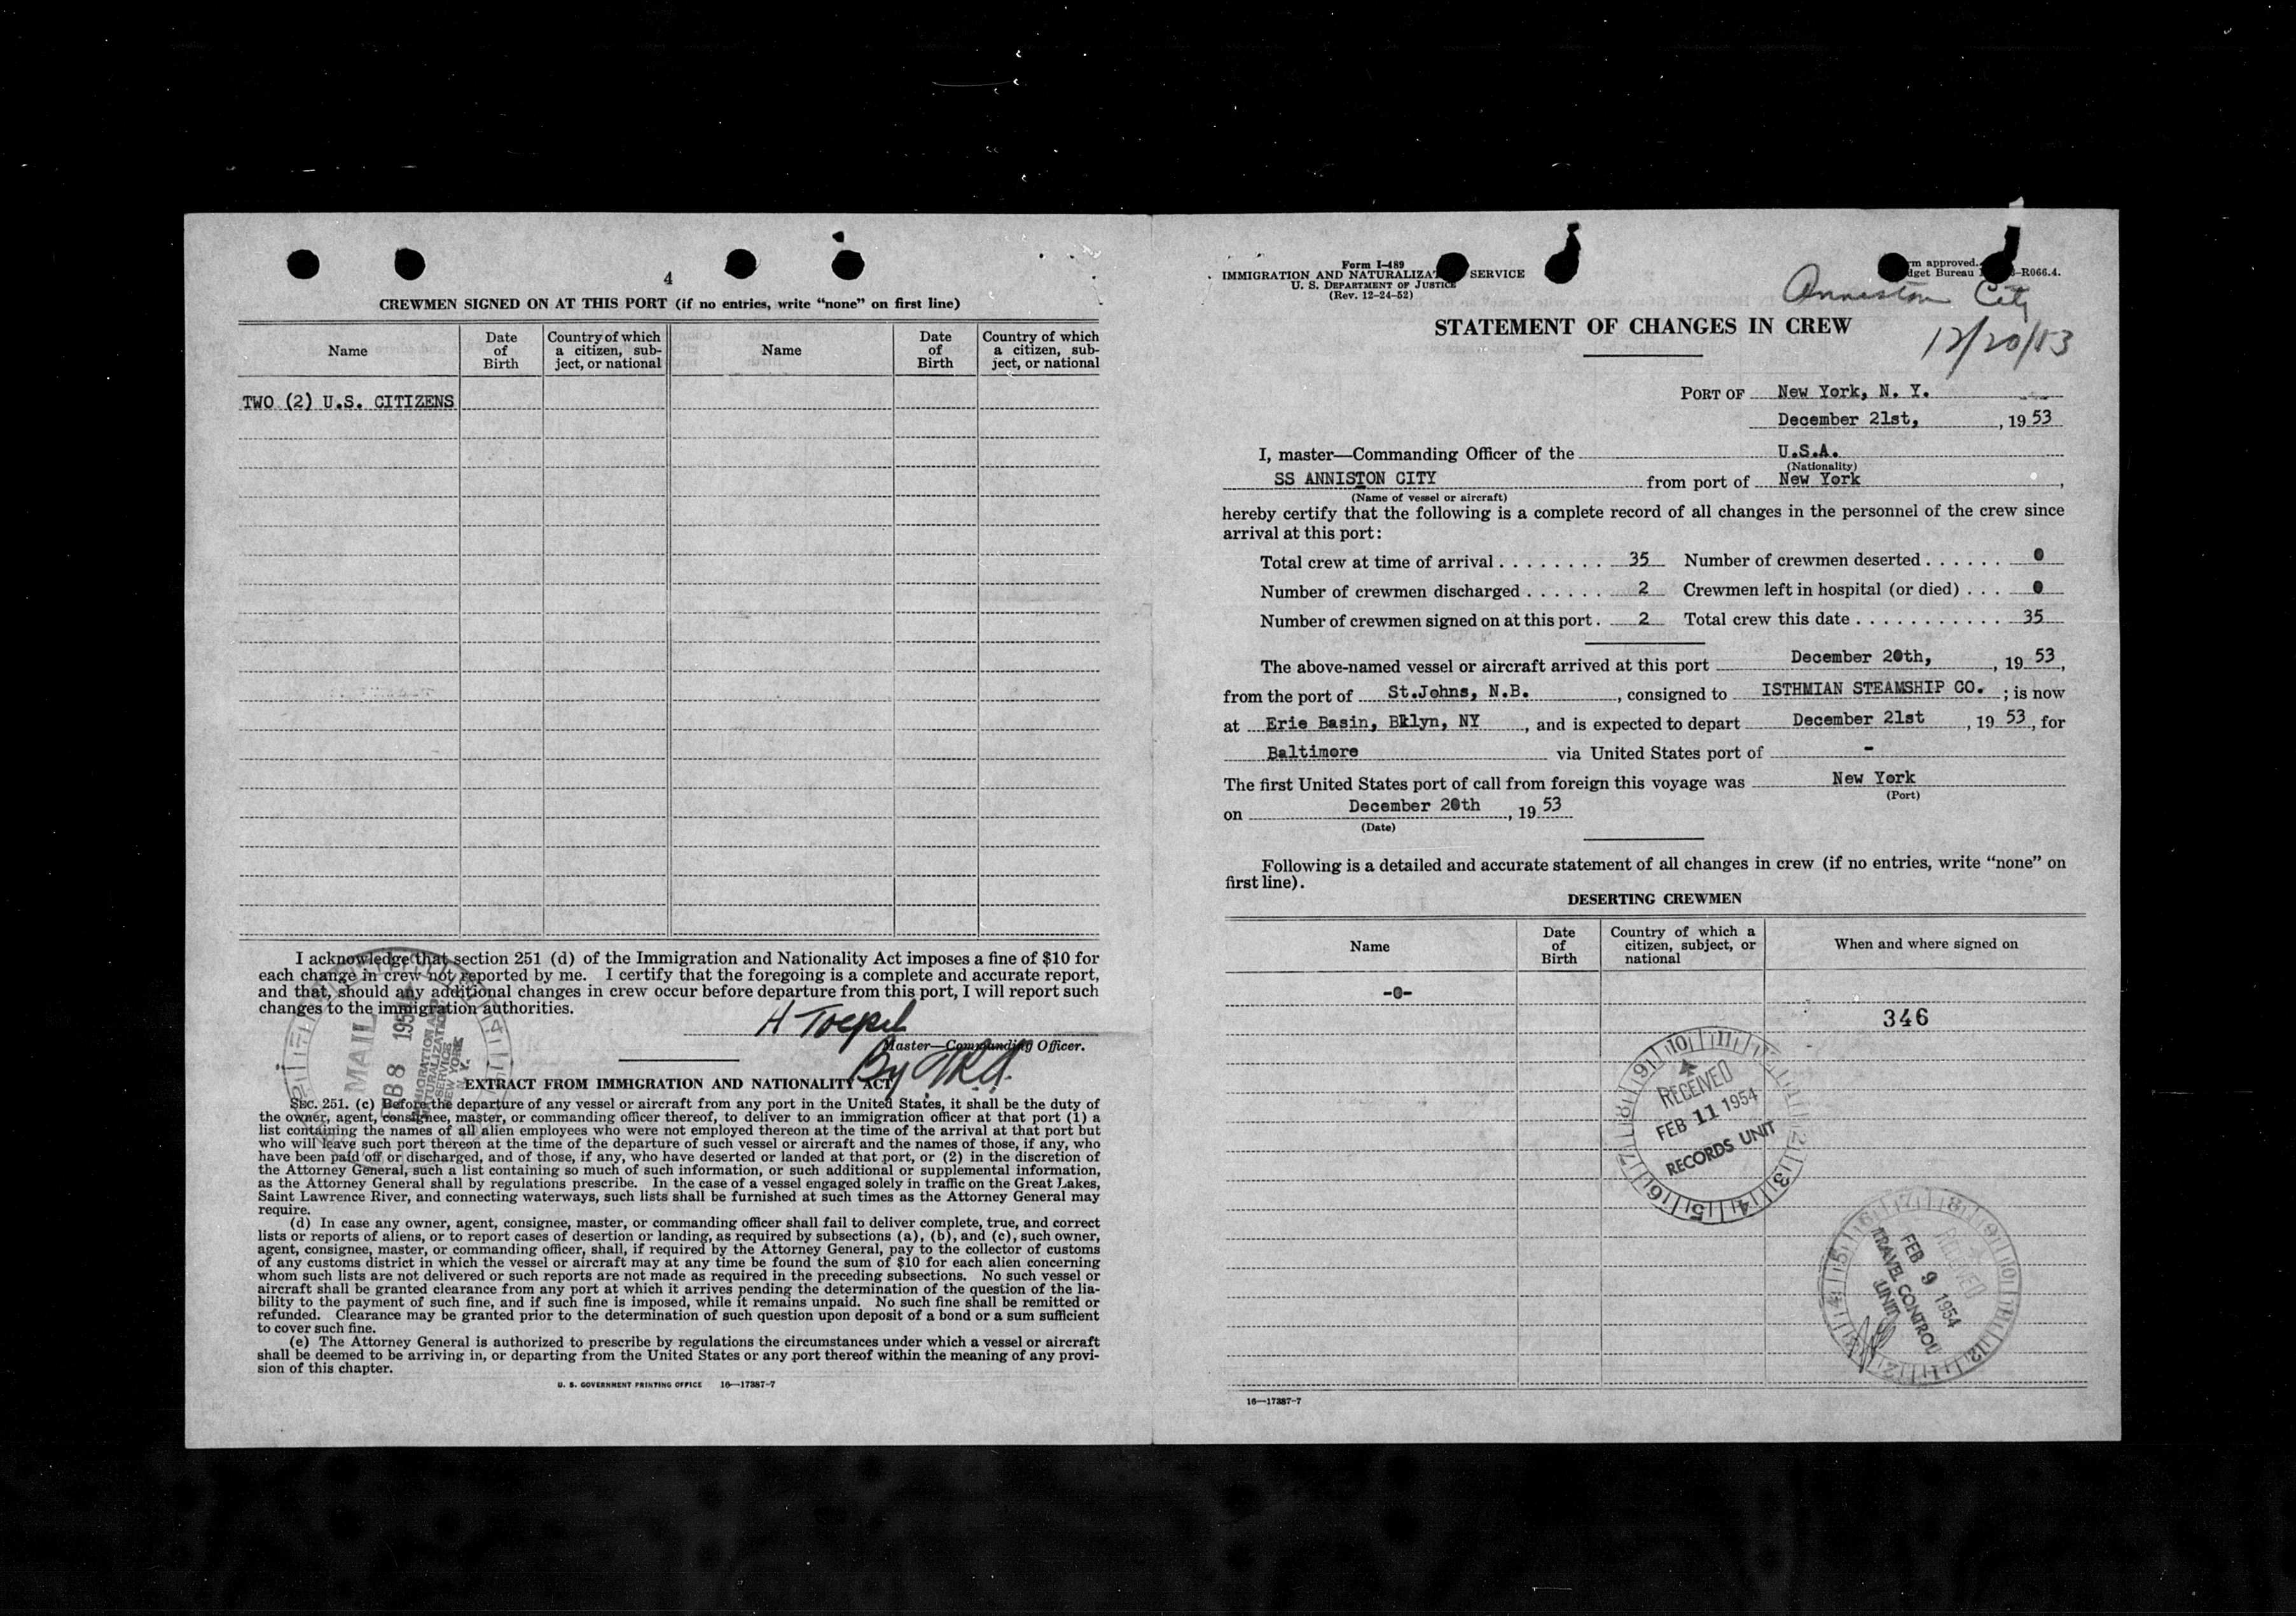 4
CREWMEN SIGNED ON AT THIS PORT (if no entries, write “none” on first line)
Name
Date of Birth
Country of which a citizen, subject, or national
Name
Date of Birth
Country of which a citizen, subject, or national
TWO (2) U.S. CITIZENS
I acknowledge that section 251 (d) of the Immigration and Nationality Act imposes a fine of $10 for
each change in crew not reported by me. I certify that the foregoing is a complete and accurate report,
and that, should any additional changes in crew occur before departure from this port, I will report such
changes to the immigration authorities.
H Toepel
Master—Commanding Officer.
By
MAIL
FEB 8 1954
IMMIGRATION AND
NATURALIZATION
SERVICE
NEW YORK
N. Y.
EXTRACT FROM IMMIGRATION AND NATIONALITY ACT
SEC. 251. (c) Before the departure of any vessel or aircraft from any port in the United States, it shall be the duty of
the owner, agent, consignee, master, or commanding officer thereof, to deliver to an immigration officer at that port (1) a
list containing the names of all alien employees who were not employed thereon at the time of the arrival at that port but
who will leave such port thereon at the time of the departure of such vessel or aircraft and the names of those, if any, who
have been paid off or discharged, and of those, if any, who have deserted or landed at that port, or (2) in the discretion of
the Attorney General, such a list containing so much of such information, or such additional or supplemental information,
as the Attorney General shall by regulations prescribe. In the case of a vessel engaged solely in traffic on the Great Lakes,
Saint Lawrence River, and connecting waterways, such lists shall be furnished at such times as the Attorney General may
require.
(d) In case any owner, agent, consignee, master, or commanding officer shall fail to deliver complete, true, and correct
lists or reports of aliens, or to report cases of desertion or landing, as required by subsections (a), (b), and (c), such owner,
agent, consignee, master, or commanding officer, shall, if required by the Attorney General, pay to the collector of customs
of any customs district in which the vessel or aircraft may at any time be found the sum of $10 for each alien concerning
whom such lists are not delivered or such reports are not made as required in the preceding subsections. No such vessel or
aircraft shall be granted clearance from any port at which it arrives pending the determination of the question of the lia-
bility to the payment of such fine, and if such fine is imposed, while it remains unpaid. No such fine shall be remitted or
refunded. Clearance may be granted prior to the determination of such question upon deposit of a bond or a sum sufficient
to cover such fine.
(e) The Attorney General is authorized to prescribe by regulations the circumstances under which a vessel or aircraft
shall be deemed to be arriving in, or departing from the United States or any port thereof within the meaning of any provi-
sion of this chapter.
U. S. GOVERNMENT PRINTING OFFICE 16—17387-7
Form I-489
IMMIGRATION AND NATURALIZA SERVICE
U. S. DEPARTMENT OF JUSTICE
(Rev. 12-24-52)
rm approved.
dget Bureau -R066.4.
Anniston City
12/20/53
STATEMENT OF CHANGES IN CREW
PORT OF New York, N. Y.
December 21st, , 19 53
I, master—Commanding Officer of the U.S.A.
(Nationality)
SS ANNISTON CITY from port of New York ,
(Name of vessel or aircraft)
hereby certify that the following is a complete record of all changes in the personnel of the crew since
arrival at this port:
Total crew at time of arrival . . . . . . . . 35 Number of crewmen deserted . . . . . . 0
Number of crewmen discharged . . . . . . 2 Crewmen left in hospital (or died) . . . 0
Number of crewmen signed on at this port . 2 Total crew this date . . . . . . . . . . . 35
The above-named vessel or aircraft arrived at this port December 20th, , 19 53,
from the port of St.Johns, N.B. , consigned to ISTHMIAN STEAMSHIP CO. ; is now
at Erie Basin, Bklyn, NY , and is expected to depart December 21st , 19 53, for
Baltimore via United States port of -
The first United States port of call from foreign this voyage was New York
(Port)
on December 20th , 19 53
(Date)
Following is a detailed and accurate statement of all changes in crew (if no entries, write “none” on
first line).
DESERTING CREWMEN
Name
Date of Birth
Country of which a citizen, subject, or national
When and where signed on
-0-
346
RECEIVED
FEB 11 1954
RECORDS UNIT
RECEIVED
FEB 9 1954
TRAVEL CONTROL
UNIT
16—17387-7